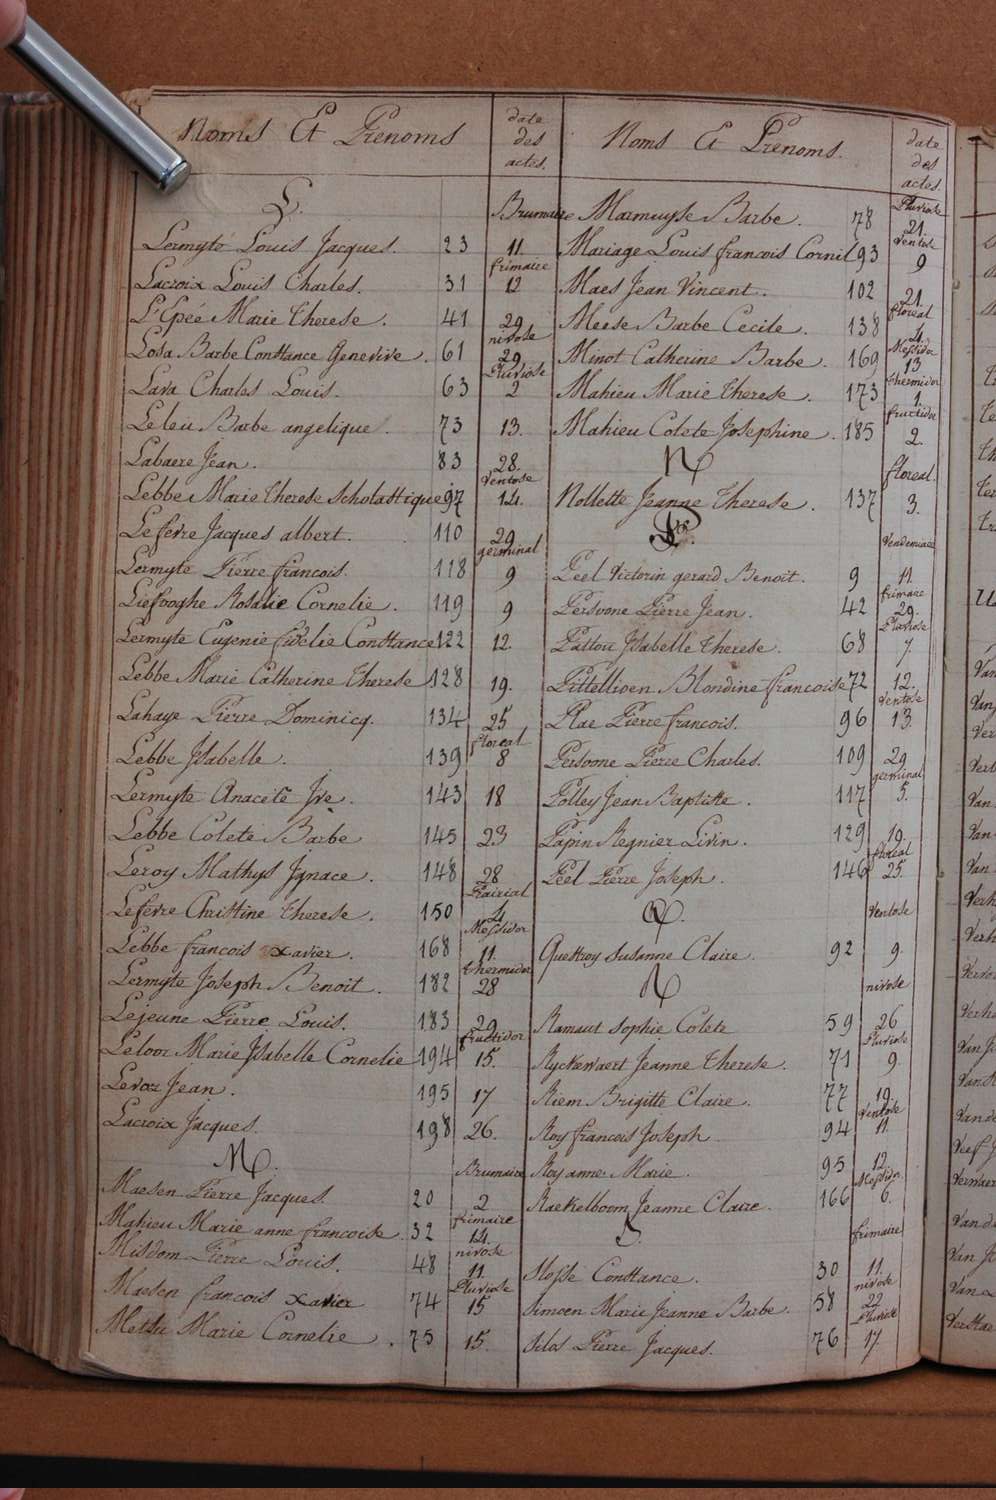 Noms Et Prenoms
date des actes.
L.
Brumaire
Lermyte Louis Jacques. 23 11.
frimaire
Lacroix Louis Charles. 31 12
L'Epée Marie Therese. 41 29
nivose
Losa Barbe Constance Genevive. 61 29
Pluviose
Lava Charles Louis. 63 2
Leleu Barbe angelique. 73 13.
Labaere Jean. 83 28.
Ventose
Lebbe Marie Therese Scholastique 97 14.
Lefevre Jacques albert. 110 29
germinal
Lermyte Pierre francois. 118 9
Liefooghe Rosalie Cornelie. 119 9
Lermyte Eugenie fidelie Constance 122 12.
Lebbe Marie Catherine Therese 128 19.
Lahaye Pierre Dominicq. 134 25
floreal
Lebbe Isabelle. 139 8
Lermyte Anacete Jre. 143 18
Lebbe Colete Barbe 145 23
Leroy Mathys Ignace. 148 28
Prairial
Lefevre Christine Therese. 150 4
Messidor
Lebbe francois Xavier. 168 11.
Thermidor
Lermyte Joseph Benoit. 182 28
Lejeune Pierre Louis. 183 29
fructidor
Leloor Marie Isabelle Cornelie 194 15.
Levar Jean. 195 17
Lacroix Jacques. 198 26.
M.
Brumaire
Maesen Pierre Jacques 20 2
frimaire
Mahieu Marie anne francoise. 32 14.
nivose
Misdom Pierre Louis. 48 11.
Pluviose
Maesen francois Xavier 74 15
Metsu Marie Cornelie. 75 15.
Noms Et Prenoms.
date des actes.
Pluviose
Marmuyse Barbe. 78 21.
Ventose
Mariage Louis francois Cornil 93 9
Maes Jean Vincent. 102 21.
floreal
Meese Barbe Cecile. 138 4.
Messidor
Minot Catherine Barbe. 169 13
thermidor
Mahieu Marie Therese. 173 1.
fructidor
Mahieu Colete Josephine. 185 2.
N
floreal
Nollette Jeanne Therese. 137 3.
P.
Vendemiaire
Peel Victorin gerard Benoit. 9 11.
frimaire
Persoone Pierre Jean. 42 29.
Pluviose
Pattou Isabelle Therese. 68 7
Pittellioen Blondine francoise 72 12.
Ventose
Plae Pierre francois. 96 13.
Persoone Pierre Charles. 109 29
germinal
Polley Jean Baptiste. 117 5.
Papin Regnier Livin. 129 19.
floreal
Peel Pierre Joseph. 146 25.
Q.
Ventose
Quettroy Susanne Claire. 92 9.
R
nivose
Ramaut Sophie Colete 59 26
Pluviose
Ryckewaert Jeanne Therese. 71 9.
Riem Brigitte Claire. 77 19.
Ventose
Roy francois Joseph 94 11.
Roy anne Marie. 95 12.
Messidor
Raekelboom Jeanne Claire. 166 6.
S.
frimaire
Slosse Constance. 30 11.
nivose
Simoen Marie Jeanne Barbe. 58 22
Pluviose
Silos Pierre Jacques. 76 17.